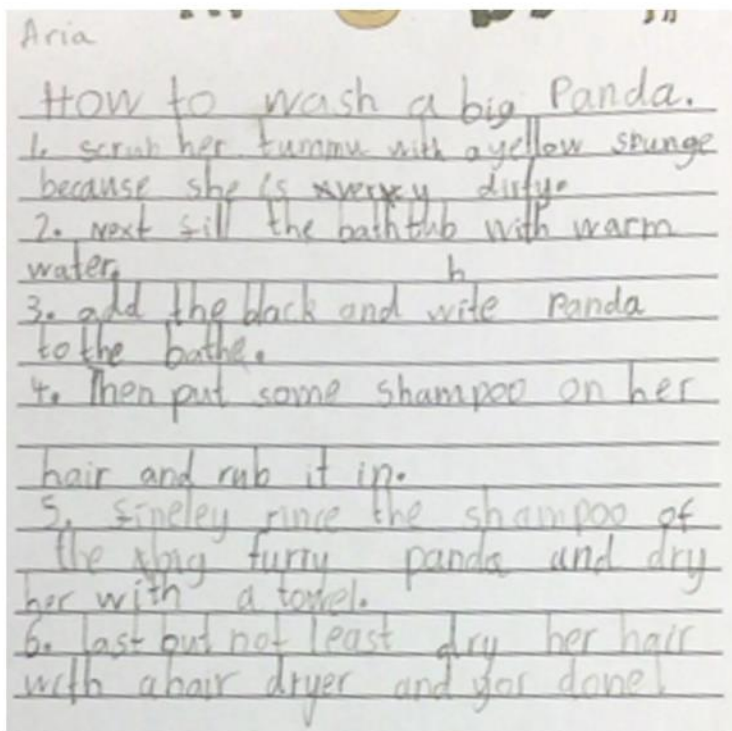 Aria
How to wash a big Panda.
1. scrub her tummu with a yellow spunge
because she is very dirty.
2. Next fill the bathtub with warm
water.
3. add the black and white Panda
to the bathe.
4. Then put some shampoo on her
hair and rub it in.
5. fineley rince the shampoo of
the big furry panda and dry
her with a towel.
6. last but not least dry her hair
with a hair dryer and yor done!